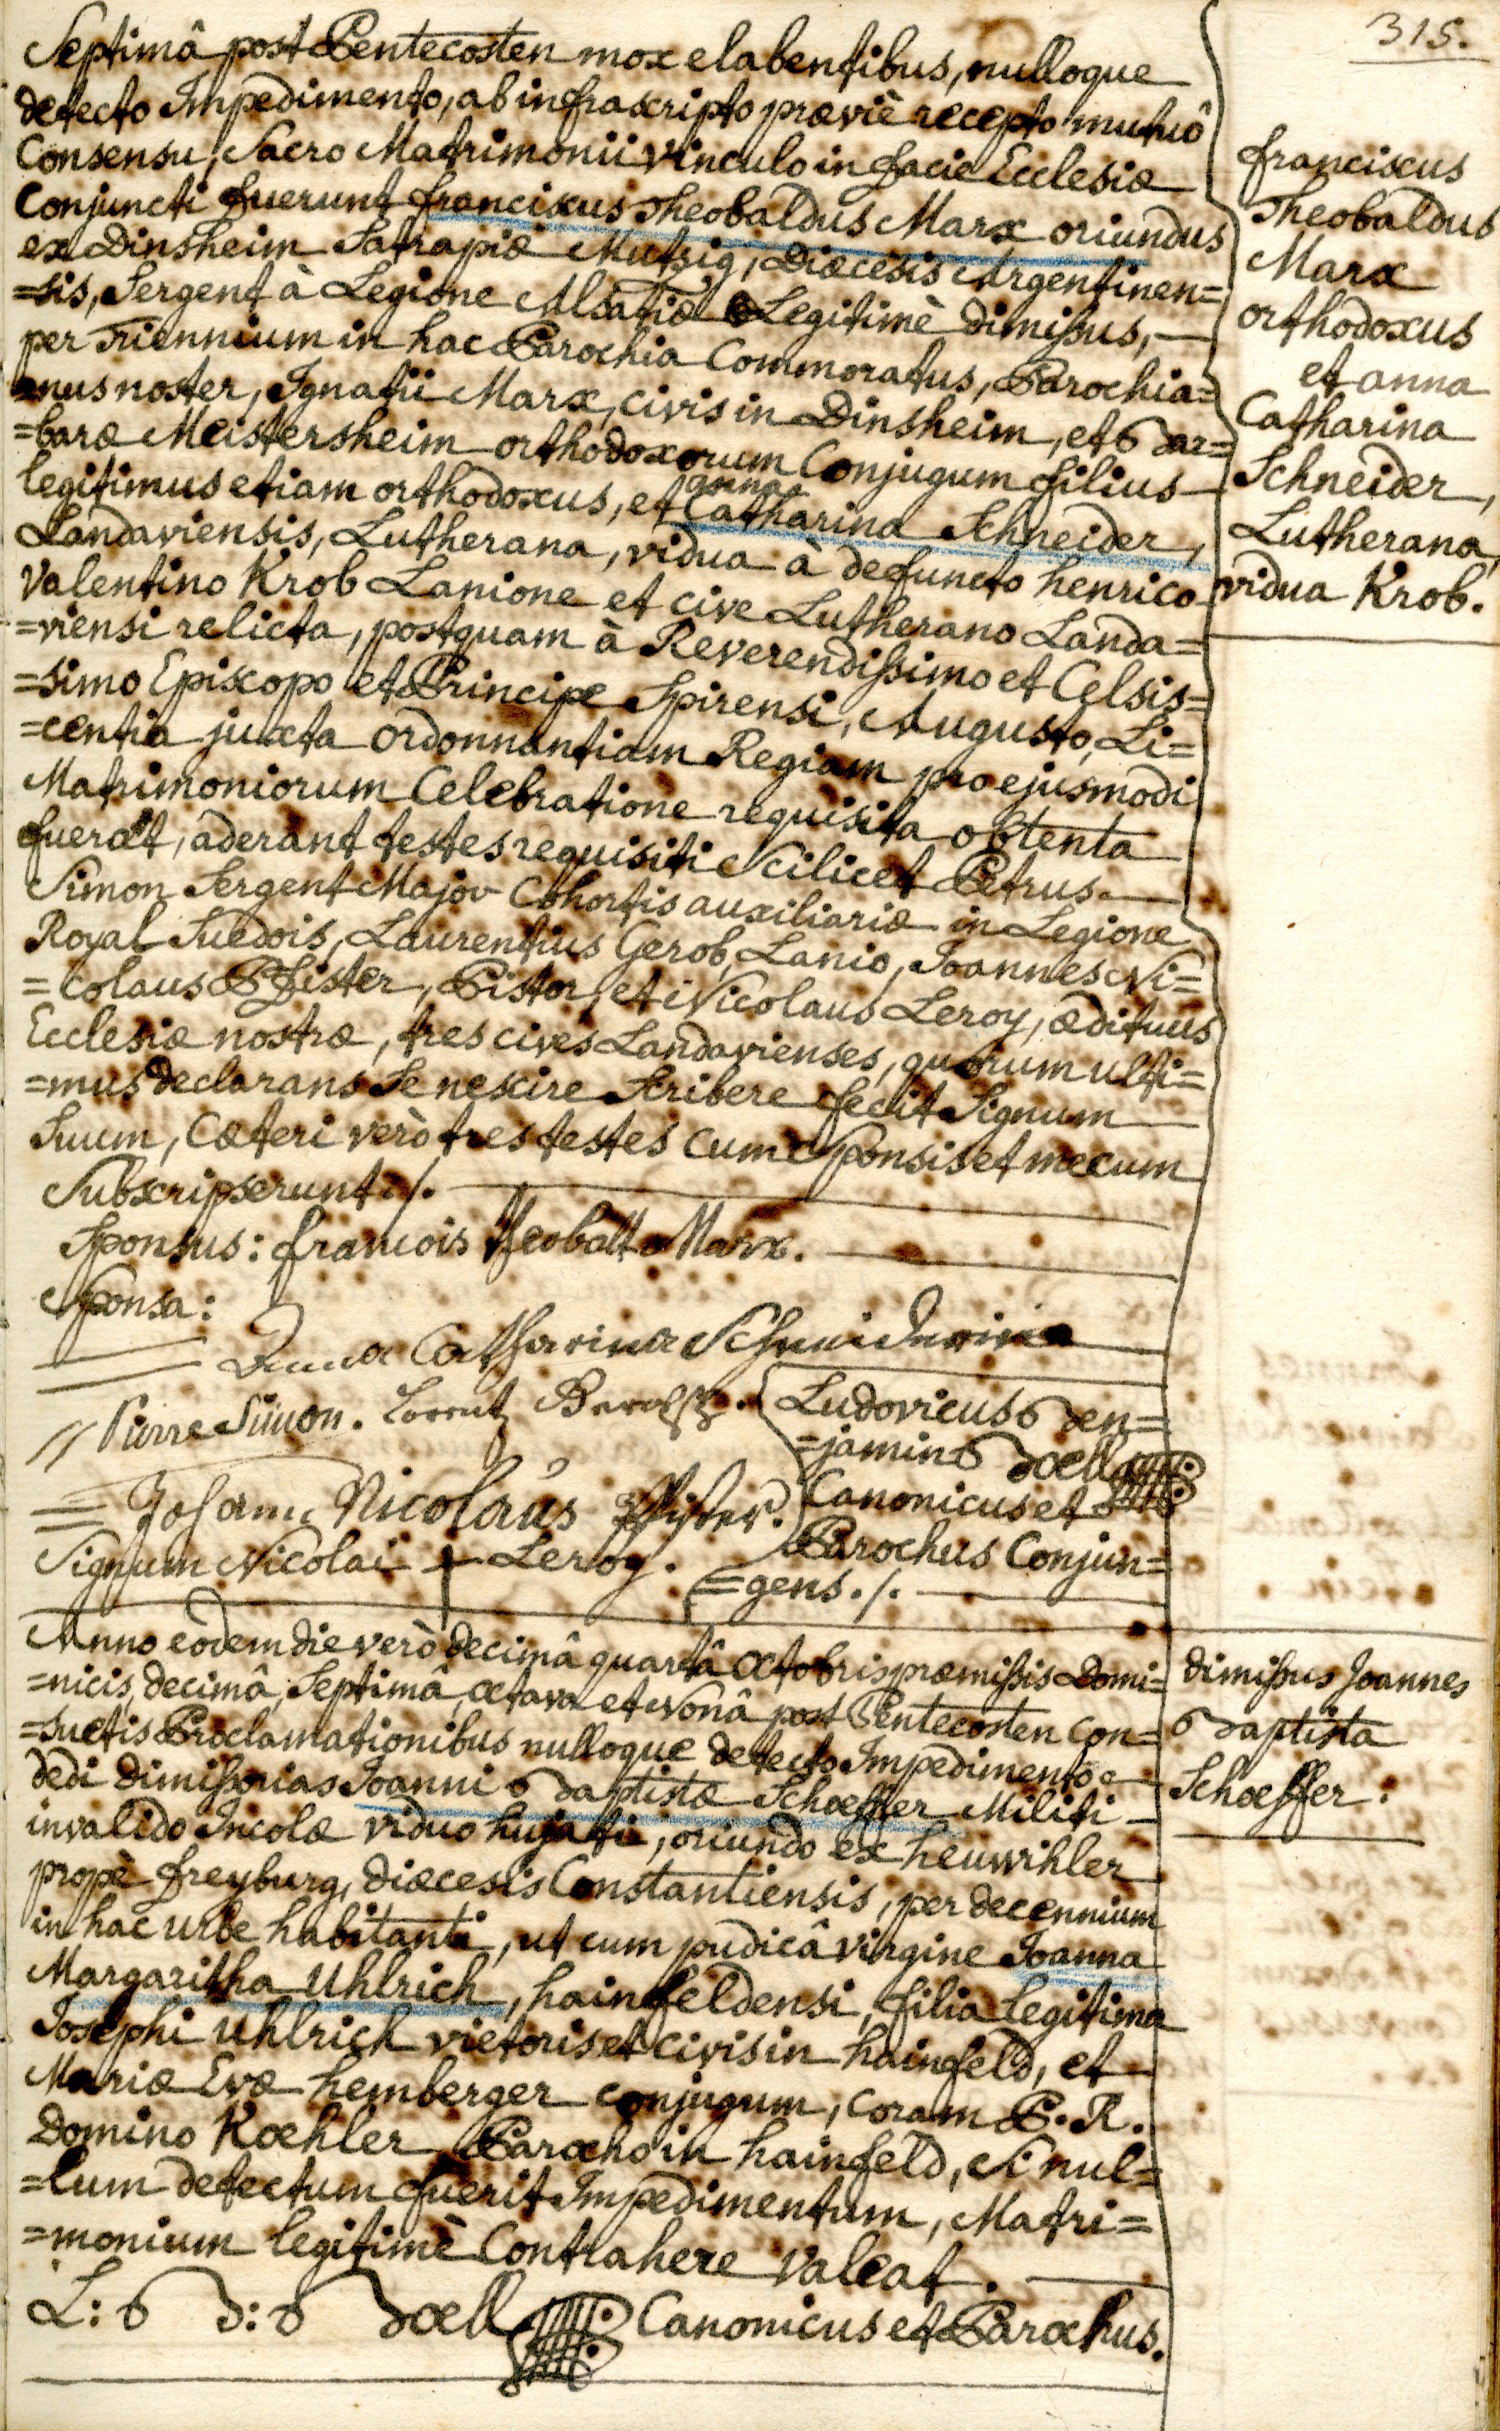 315.
Septimâ post Pentecosten mox elabentibus, nulloque
detecto Impedimento, ab infrascripto præviè recepto mutuô
Consensu, Sacro Matrimonii vinculo in facie Ecclesiæ
Conjuncti fuerunt franciscus Theobaldus Marx oriundus
ex Dinsheim Satrapiæ Mutzig, Diæcesis Argentinen=
=sis, Sergent à Legione Alsatiæ Legitimè dimissus,
per Triennium in hac Parochia Commoratus, Parochia=
=nus noster, Ignatii Marx, civis in Dinsheim, et Bar=
=baræ Meistersheim orthodoxorum Conjugum filius
legitimus etiam orthodoxus, et anna Catharina Schneider,
Landaviensis, Lutherana, vidua à defuncto henrico
Valentino Krob Lanione et cive Lutherano Landa=
=viensi relicta, postquam à Reverendissimo et Celsis=
=simo Episcopo et Principe Spirensi, Augusto, Li=
=centia juxta ordonnantiam Regiam pro ejusmodi
Matrimoniorum Celebratione requisita obtenta
fuerat, aderant testes requisiti scilicet Petrus
Simon Sergent Major Cohortis auxiliariæ in Legione
Royal Suedois, Laurentius Gerob, Lanio, Joannes Ni=
=colaus Pfister, Pistor, et Nicolaus Leroy, ædituus
Ecclesiæ nostræ, tres cives Landavienses, quorum ulti=
=mus declarans Se nescire Scribere fecit Signum
Suum, Cæteri verò tres testes cum Sponsis et mecum
Subscripserunt ./.
Sponsus: francois Theobalt Marx.
Sponsa:
Anna Catharina Schneiderin
Pierre Simon. Lorentz
Johann Nicolaus Pfister.
Signum Nicolai + Leroy.
Ludovicus Ben=
=jamin Boell
Canonicus et
Parochus Conjun=
=gens ./.
franciscus
Theobaldus
Marx
orthodoxus
et anna
Catharina
Schneider,
Lutherana,
vidua Krob.
Anno eôdem die verò decimâ quartâ Octobris præmissis Domi=
=nicis, decimâ, Septimâ, octava et Nonâ post Pentecosten con=
=suetis Proclamationibus nulloque detecto Impedimentô
dedi dimissorias Joanni Baptistæ Schoeffer Militi
invalido Incolæ viduo hujati, oriundo ex heuwihler
propè freyburg, diæcesis Constantiensis, per decennium
in hac urbe habitanti, ut cum pudicâ virgine Joanna
Margaritha Uhlrich, hainfeldensi, filia legitima
Josephi Uhlrich vietoris et civis in hainfeld, et
Mariæ Evæ hemberger conjugum, coram P. R.
Domino Koehler Parocho in hainfeld, si nul=
=lum detectum fuerit Impedimentum, Matri=
=monium legitimè Contrahere valeat.
L: B: Boell Canonicus et Parochus.
dimissus Joannes
Baptista
Schoeffer: